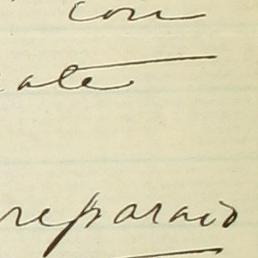 con
ate
reparaio